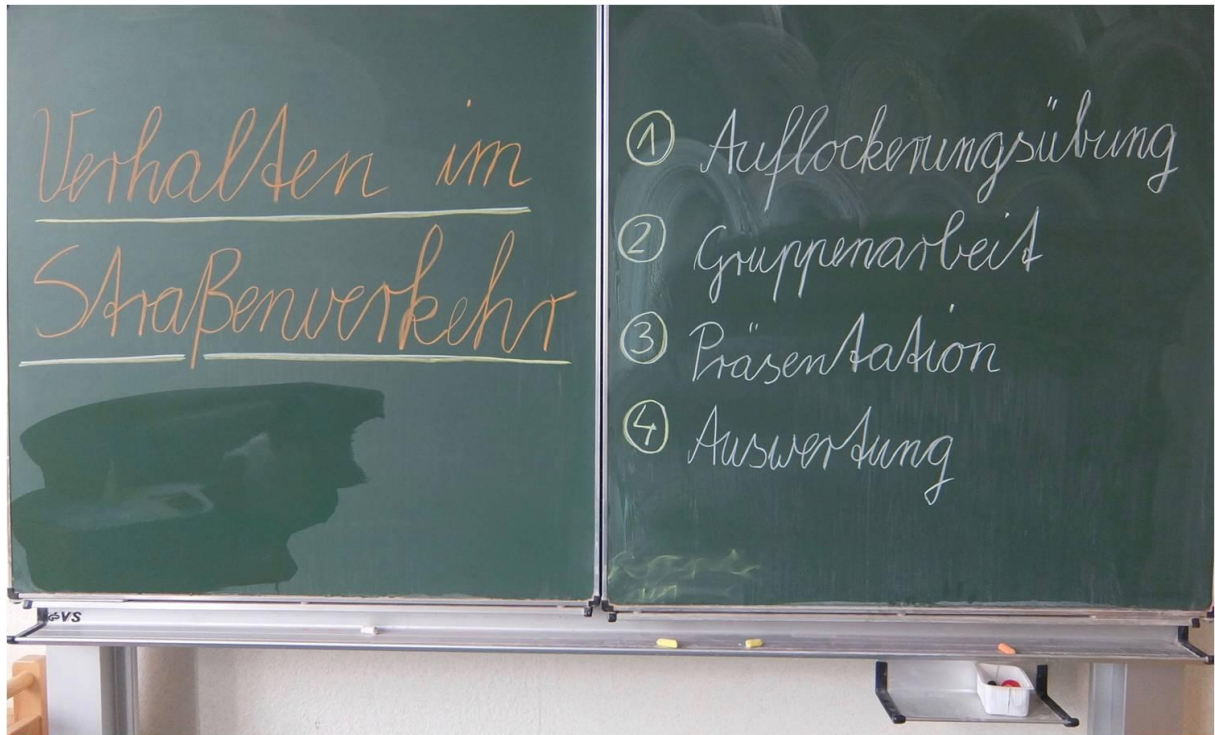 Verhalten im
Straßenverkehr
① Auflockerungsübung
② Gruppenarbeit
③ Präsentation
④ Auswertung
VS